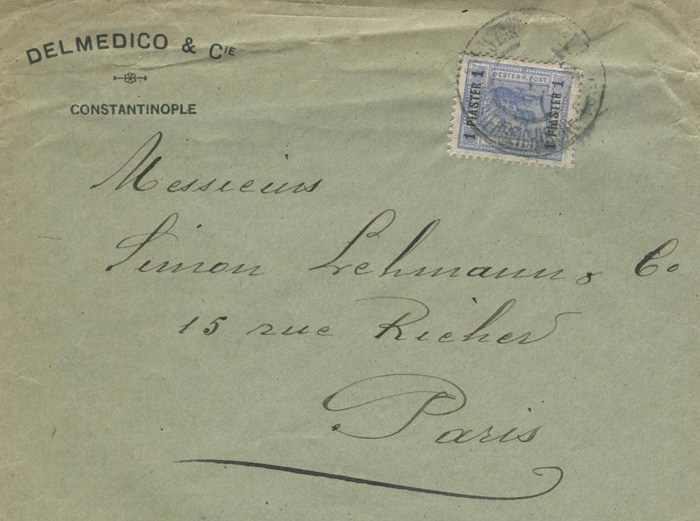 DELMEDICO & Cie
CONSTANTINOPLE
1 PIASTER 1
OESTERR. POST
1 PIASTER 1
Messieurs
Simon Lehmann & Co
15 rue Richer
Paris